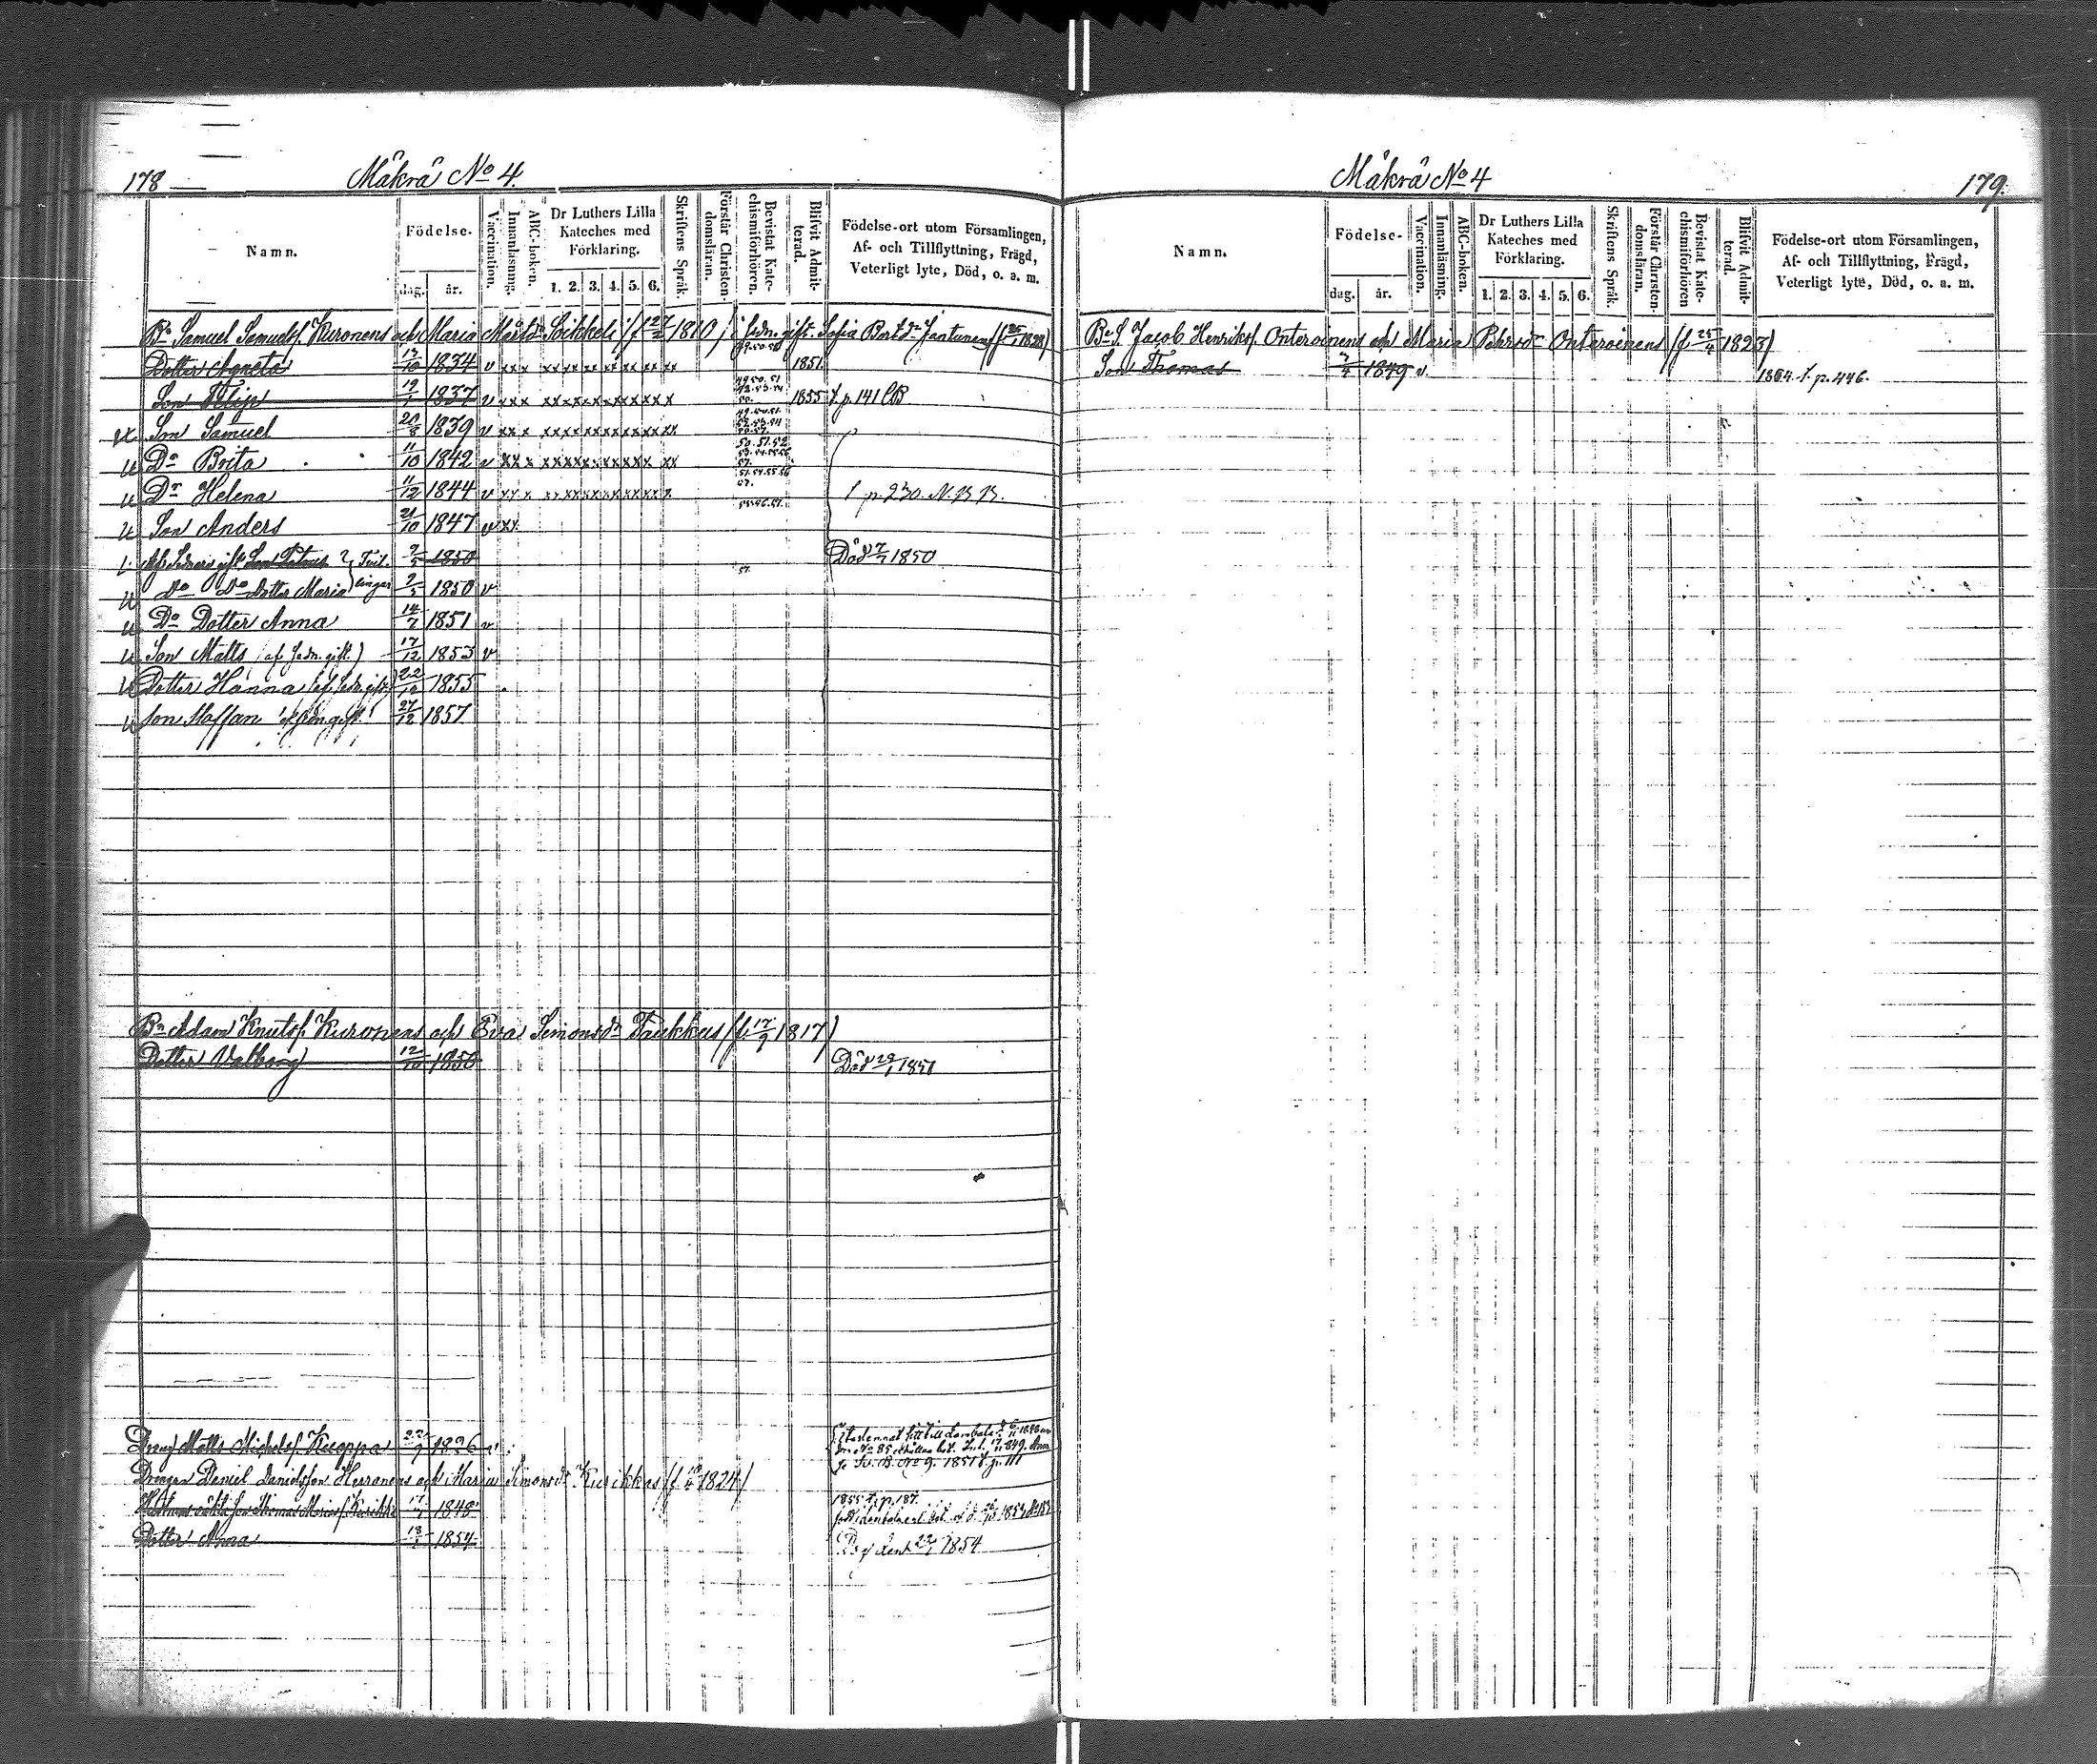 178
Måkrå No 4.
Namn.
Födelse.
dag.
år.
Vaccination.
Innanläsning.
ABC-boken.
Dr Luthers Lilla Kateches med Förklaring.
1. 2. 3. 4. 5. 6.
Skriftens Språk.
Förstår Christendomsläran.
Bevistat Katechismiförhören.
Blifvit Admitterad.
Födelse-ort utom Församlingen, Af- och Tillflyttning, Frägd, Veterligt lyte, Död, o. a. m.
Bn Samuel Samuelsf. Kuronens och Maria Mårtsdr Loikkeli (f 27/2 1810) i sedn. gift. Sofia (f 25/1 1828)
Dotter Agneta 13/10 1834 v xxx 1851
Son Filip 12/1 1837 v xxx 1855 f. p 141 CB
Son Samuel 20/8 1839 v xxx
Do Brita 11/10 1842 v xxx
Dr Helena 11/12 1844 v xxx f p 230 N.B B.
Son Anders 21/10 1847 v xx
Af Sednare gift. Son 2/5 1850 Död 7/7 1850
Do Do Dotter Maria 2/5 1850 v
Do Dotter Anna 14/7 1851 v
Son Matts (af sedn. gift.) 17/12 1853 v
Dotter Hanna (af sedn. gift) 22/12 1855
Son Staffan (af sedn gift) 27/12 1857
Bn Adam Knutsf. Kuronens och Eva Simonsdr Taukkus (f. 17/9 1817)
Dotter Valborg 12/10 1850 Död 29/1 1851
Dreng Matts Michelsf. Kuoppa 22/9 1826 v
1851 f. p. 111
Drengen Daniel Danielsson Herranens och Maria Simonsdr Kurikkas (f 1824)
17 1848 1855 f. p. 187.
Dotter Anna 18/1 1854 Död den 22/1 1854
Måkrå No 4
179.
Namn.
Födelse-
dag.
år.
Vaccination.
Innanläsning.
ABC-boken.
Dr Luthers Lilla Kateches med Förklaring.
1. 2. 3. 4. 5. 6.
Skriftens Språk.
Förstår Christendomsläran.
Bevistat Katechismiförhören
Blifvit Admitterad.
Födelse-ort utom Församlingen, Af- och Tillflyttning, Frägd, Veterligt lyte, Död, o. a. m.
Be S. Jacob Henriksf. Onteroinens och Maria Pehrsdr Onteroinens (f. 25/4 1823)
Son Thomas 3/4 1849 v. 1854 f. p. 446.